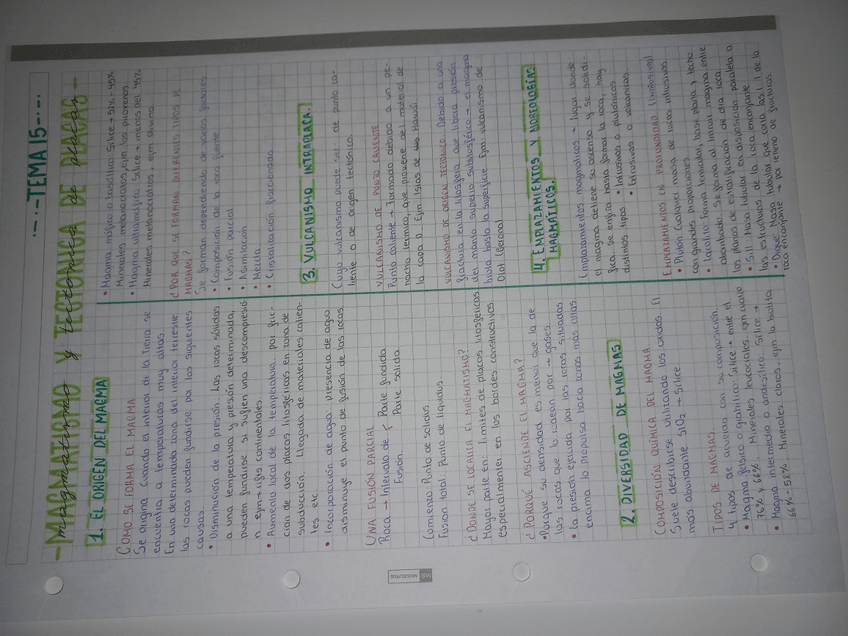 ·-·-TEMA 15-·-·
-MAGMATISMO Y TECTÓNICA DE PLACAS-
magmatismo y tectónica de placas
1. EL ORIGEN DEL MAGMA
COMO SE FORMA EL MAGMA
Se origina cuando el interior de la Tierra se
encuentra a temperaturas muy altas
En una determinada zona del interior terrestre
las rocas pueden fundirse por las siguientes
causas.
• Disminución de la presión. Las rocas sólidas
a una temperatura y presión determinada,
pueden fundirse si sufren una descompresió
n ejm → rifts continentales
• Aumento local de la temperatura por fric-
ción de las placas litosféricas en zona de
subducción. Llegada de materiales calien-
tes etc
• Incorporación de agua presencia de agua
disminuye el punto de fusión de las rocas
UNA FUSIÓN PARCIAL
Roca → Intervalo de Parte fundida
Fusión. Parte solida
Comienzo Punto de solidus
Fusión total: Punto de liquidus
¿DONDE SE LOCALIZA EL MAGMATISMO?
Mayor parte en: limites de placas litosféricas
especialmente en los bordes constructivos
¿PORQUE ASCIENDE EL MAGMA?
• Porque su densidad es menor que la de
las rocas que lo rodean por → gases.
• la presión ejercida por las rocas situadas
encima lo propulsa hacia zonas más altas
2. DIVERSIDAD DE MAGMAS
COMPOSICIÓN QUÍMICA DEL MAGMA
Suele describirse utilizando los oxidos. El
mas abundante SiO₂ → Silice
TIPOS DE MAGMAS.
4 tipos de acuerdo con su composición.
• Magma félsico o granítico: Silice → entre el
76% y 66% Minerales leucocratos, ejm cuarzo
• Magma intermedio o andesítico: Silice →
66% - 52% Minerales claros, ejm la biotita
• Magma máfico o basáltico: Silice → 52% - 45%
Minerales melanocratos, ejm los piroxenos.
• Magma ultramáfico: Silice → menos del 45%
Minerales melanocraticos, ejm olivino.
¿POR QUE SE FORMAN DIFERENTES TIPOS DE
MAGMAS?
Se forman dependiendo de varios factores
• Composición de la roca fuente
• Fusión parcial
• Asimilación
• Mezcla
• Cristalización fraccionada
3. VULCANISMO INTRAPLACA.
Cuyo vulcanismo puede ser: de punto ca-
liente o de origen tectónico.
VULCANISMO DE PUNTO CALIENTE
Punto caliente → formado debido a un pe-
nacho térmico, que proviene del material de
la capa D. Ejm Islas de Hawái.
VULCANISMO DE ORIGEN TECTONICO Debido a una
fractura en la litosfera que libera presión
del manto superior sublitosférico → el magma
huya hasta la superficie. Ejm: vulcanismo de
Olot (Gerona)
4. EMPLAZAMIENTOS Y MORFOLOGÍAS
MAGMÁTICOS.
Emplazamientos magmáticos → lugar donde
el magma detiene su ascenso y se solidi-
fica. Se enfría hasta formar la roca, hay
distintos tipos • Intrusivos o plutónicos
• Extrusivos o volcánicos
EMPLAZAMIENTOS EN PROFUNDIDAD (INTRUSIVOS)
• Plutón Cualquier masa de rocas intrusivas
con grandes proporciones.
• Lacolito forma lenticular, base plana y techo
abombado. Se forma al intruir magma entre
los planos de estratificación de otra roca.
• Sill Masa tabular en disposición paralela a
las estructuras de la roca encajante.
• Dique: Masa tabular que corta las de la
roca encajante → por relleno de fracturas